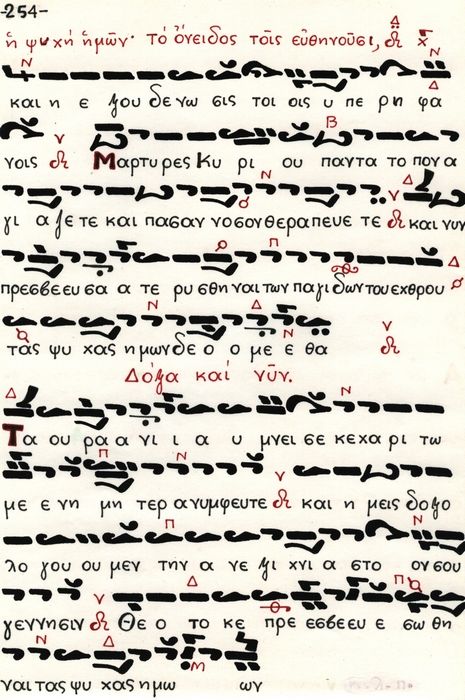 -254-
ἡ ψυχή ἡμῶν· τό ὄνειδος τοῖς εὐθηνοῦσι,
και η ε ξου δε νω σις τοι οις υ πε ρη φα
νοις Μαρτυρες Κυ ρι ου παντα το πον α
γι α ζε τε και πασαν νοσον θεραπευε τε και νυν
πρεσβεευ σα α τε ρυ σθη ναι των πα γι δων του εχθρου
τας ψυ χας ημων δε ο ο με ε θα
Δόξα καί νῦν.
Τα ου ρα α νι ι α υ μνει σε κεχα ρι τω
με ε νη μη τερ ανυμφευτε και η μεις δοξο
λο γου ου μεν την α νε ξι χνι α στο ον σου
γεννησιν Θε ο το κε πρε εσβεευ ε σω θη
ναι τας ψυ χας ημω ων